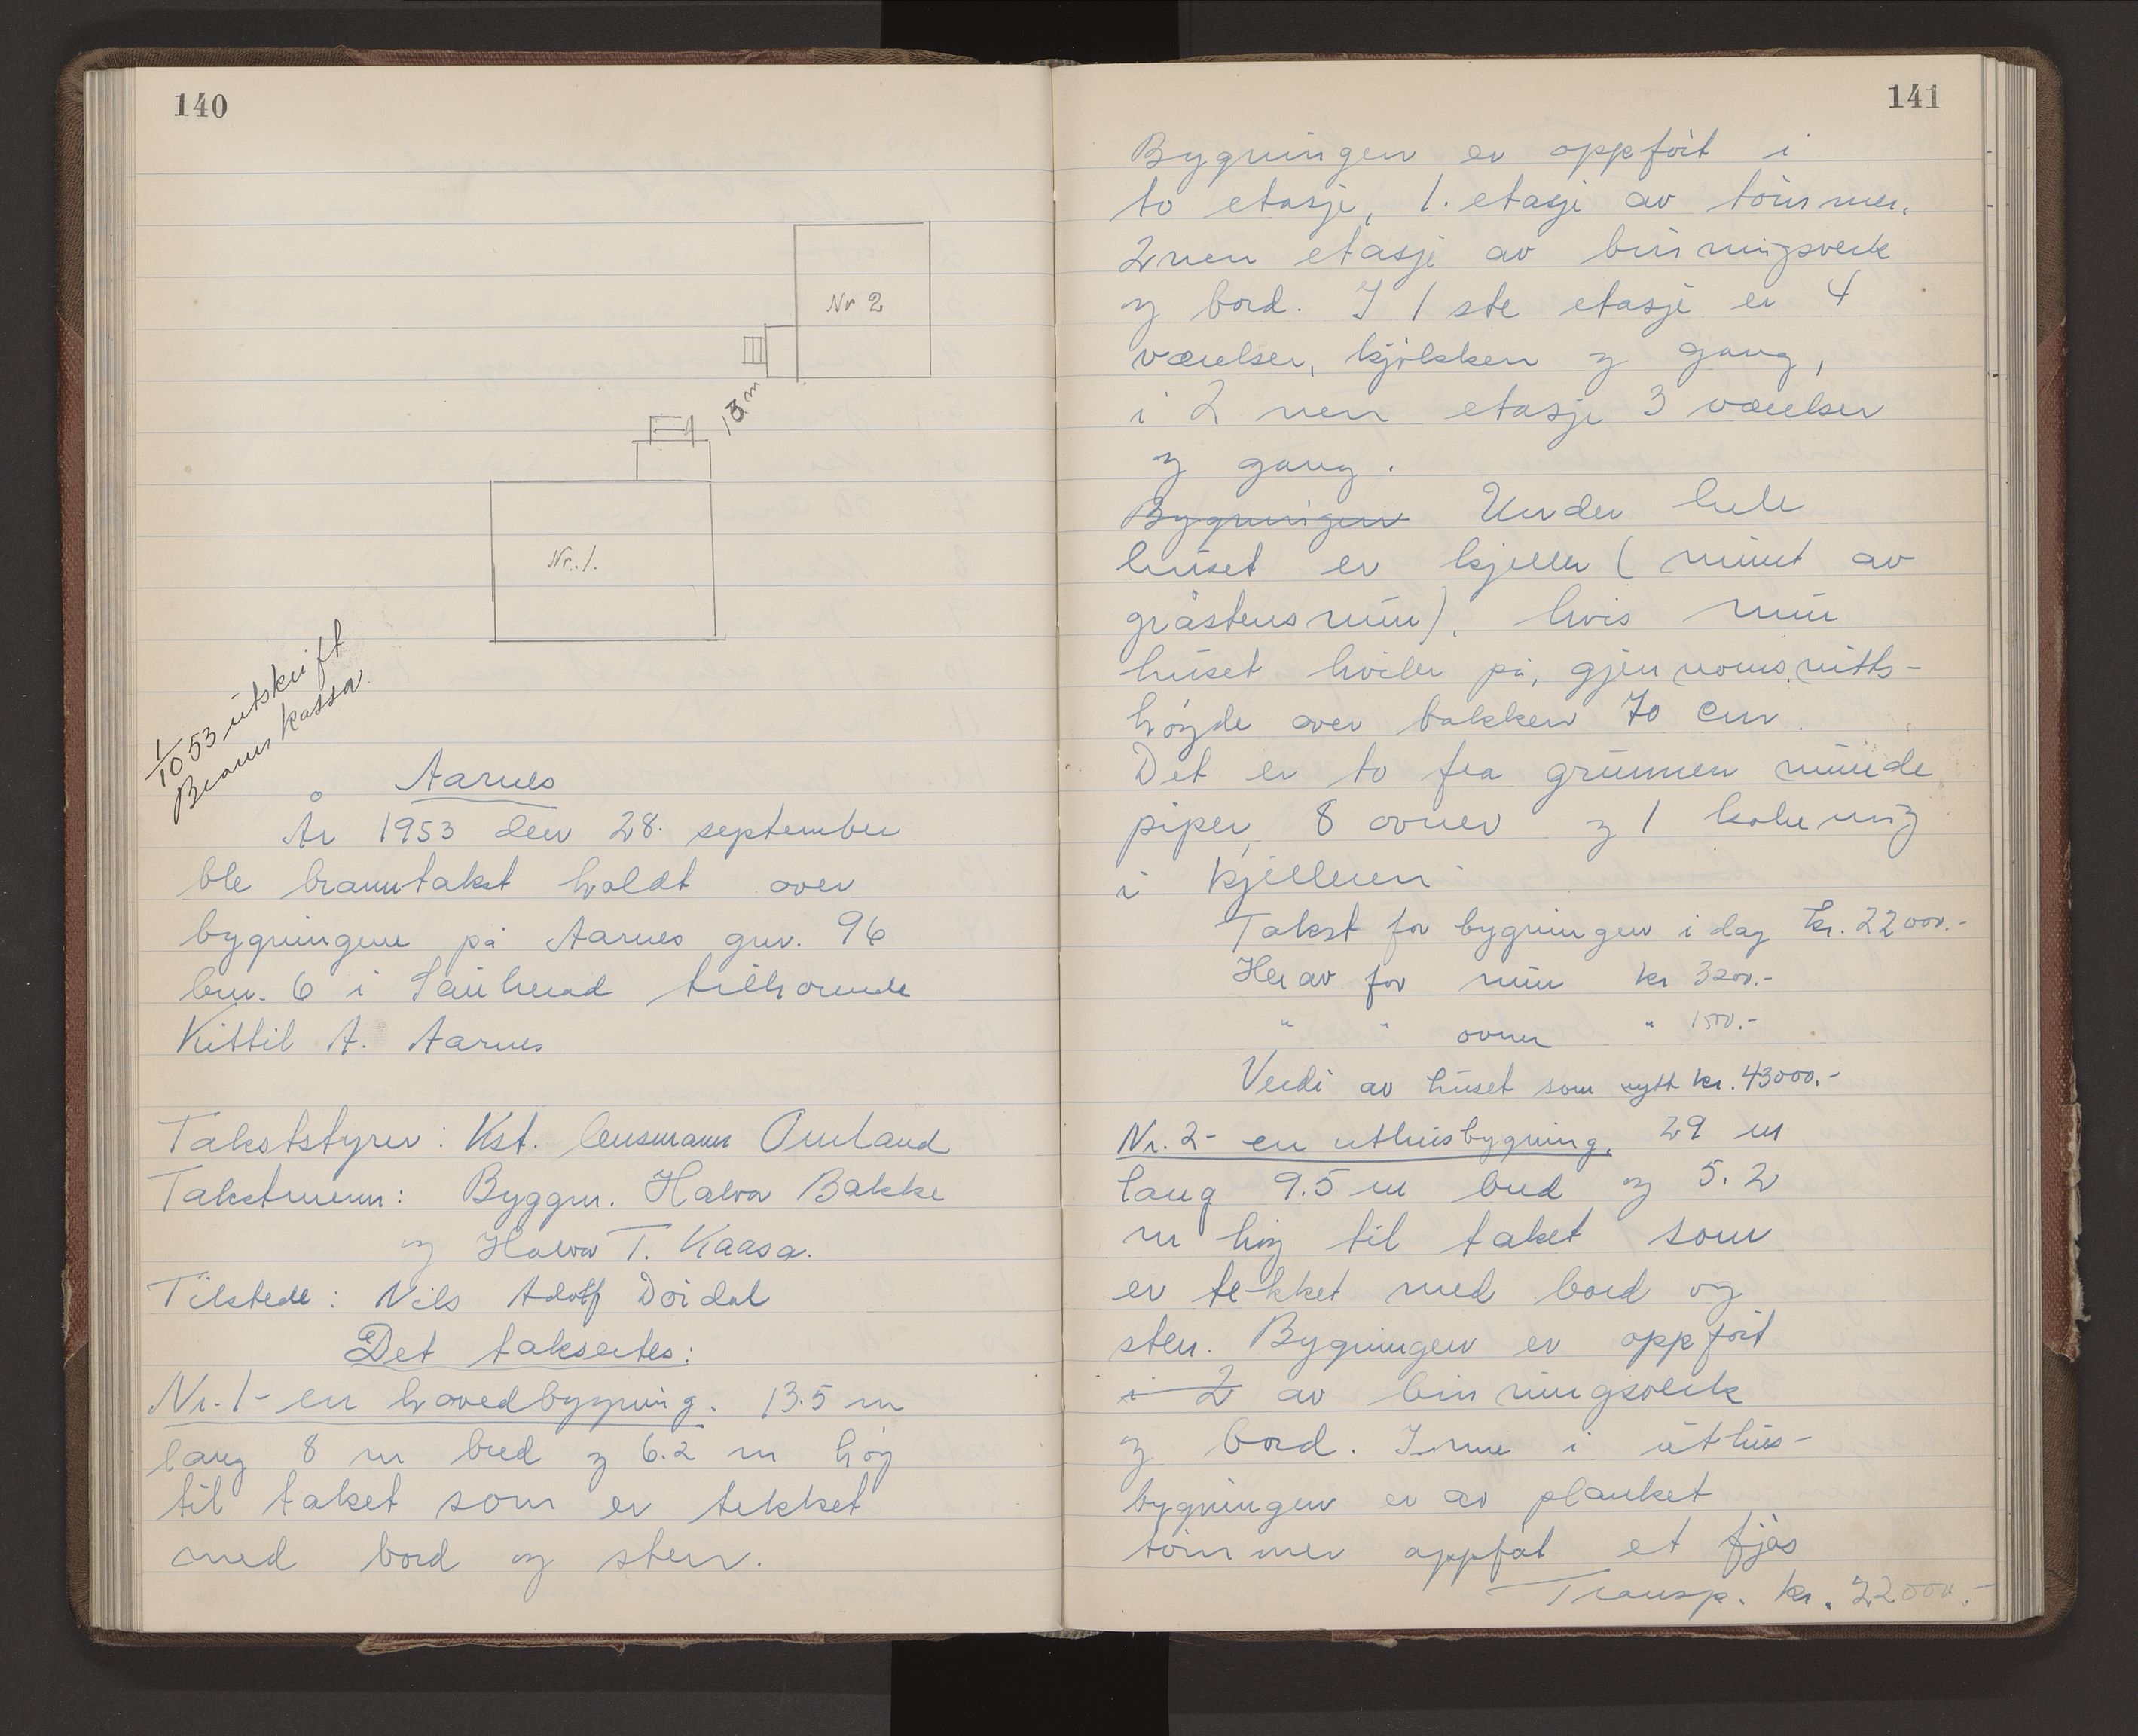 140
Nr 2
13 m
Nr. 1.
1/10 53 utskrift
Brannkassa.
Aarnes
År 1953 den 28. september
ble branntakst holdt over
bygningene på Aarnes gnr. 96
bnr. 6 i Sauherad tilhørende
Kittil A. Aarnes
Takststyrer: Kst. lensmann Omland
Takstmenn: Byggm. Halvor Bakke
og Halvor T. Kaasa.
Tilstede: Nils Adolf Doidal
Det taksertes:
Nr. 1 - en hovedbygning. 13.5 m
lang 8 m bred og 6.2 m høg
til taket som er tekket
med bord og sten.
141
Bygningen er oppført i
to etasje, 1. etasje av tømmer.
2nen etasje av binningsverk
og bord. I 1ste etasje er 4
værelser, kjøkken og gang,
i 2nen etasje 3 værelser
og gang.
Bygningen Under hele
huset er kjeller (muret av
gråstensmur), hvis mur
huset hviler på, gjennomsnitts-
høyde over bakken 70 cm.
Det er to fra grunnen murde
piper, 8 ovner og 1
i kjelleren
Takst for bygningen i dag kr. 22000.-
Herav for mur kr 3200.-
" " ovner " 1500.-
Verdi av huset som nytt kr. 43000.-
Nr. 2 - en uthusbygning. 29 m
lang 9.5 m bred og 5.2
m høg til taket som
er tekket med bord og
sten. Bygningen er oppført
i 2 av binningsverk
og bord. Inne i uthus-
bygningen er av planket
tømmer oppført et fjøs
Transp. kr. 22000.-